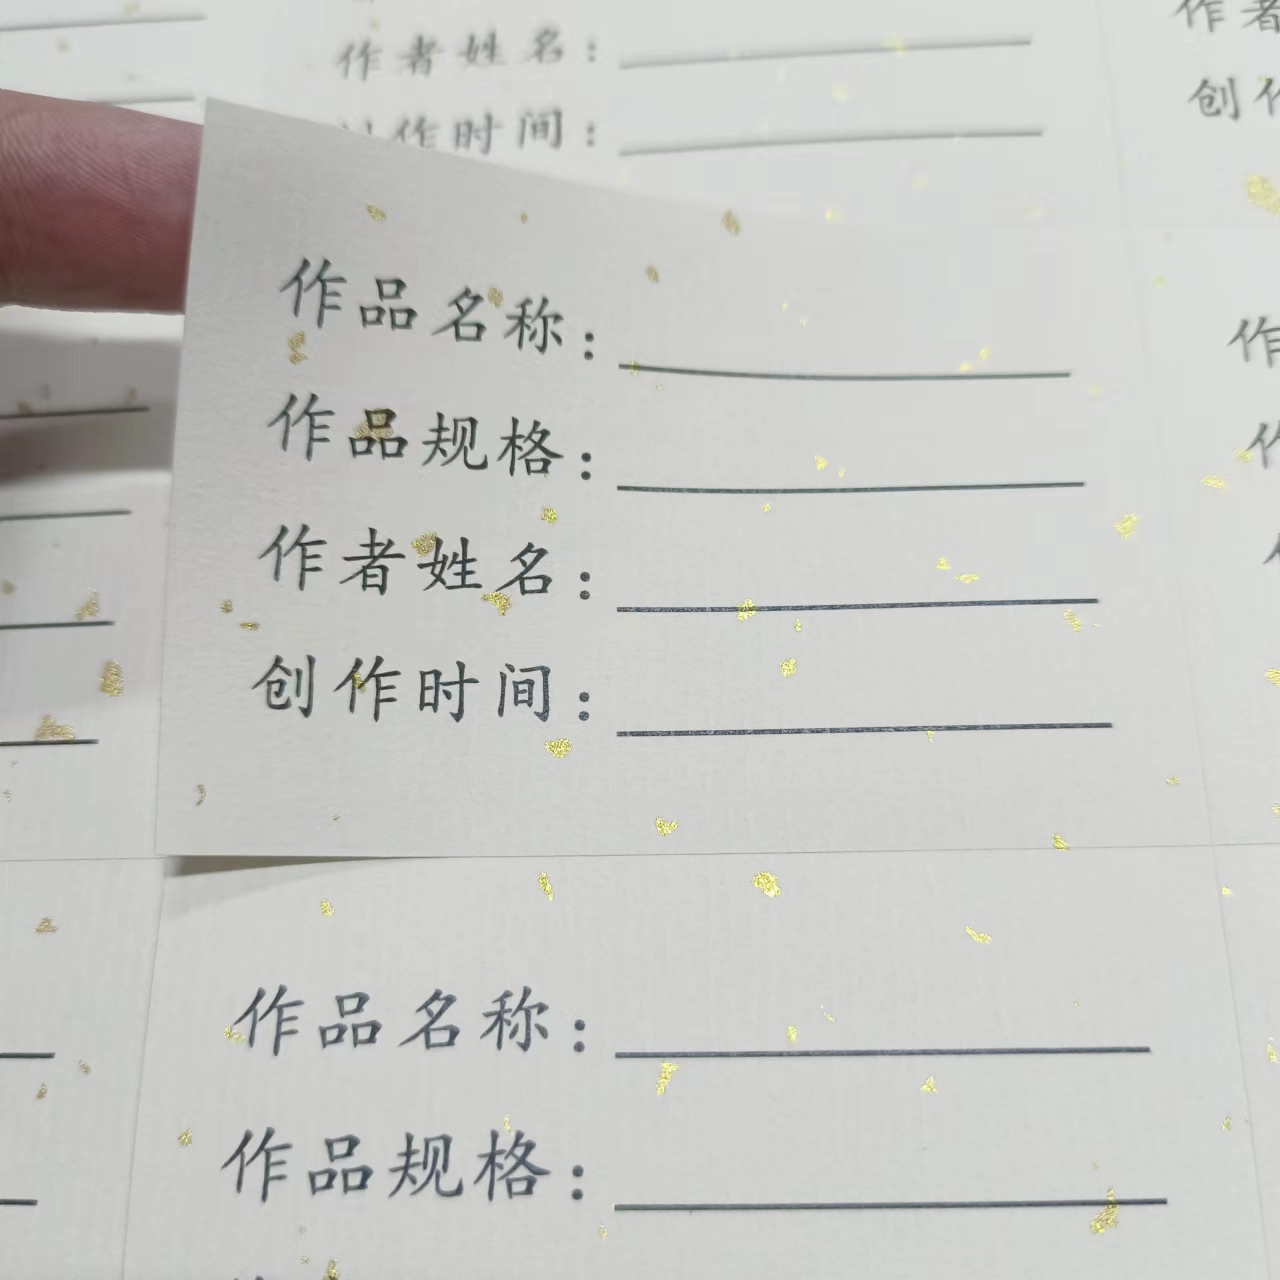 作者姓名：
作时间：
作者
创作
作品名称：
作品规格：
作者姓名：
创作时间：
作
作
作品名称：
作品规格：